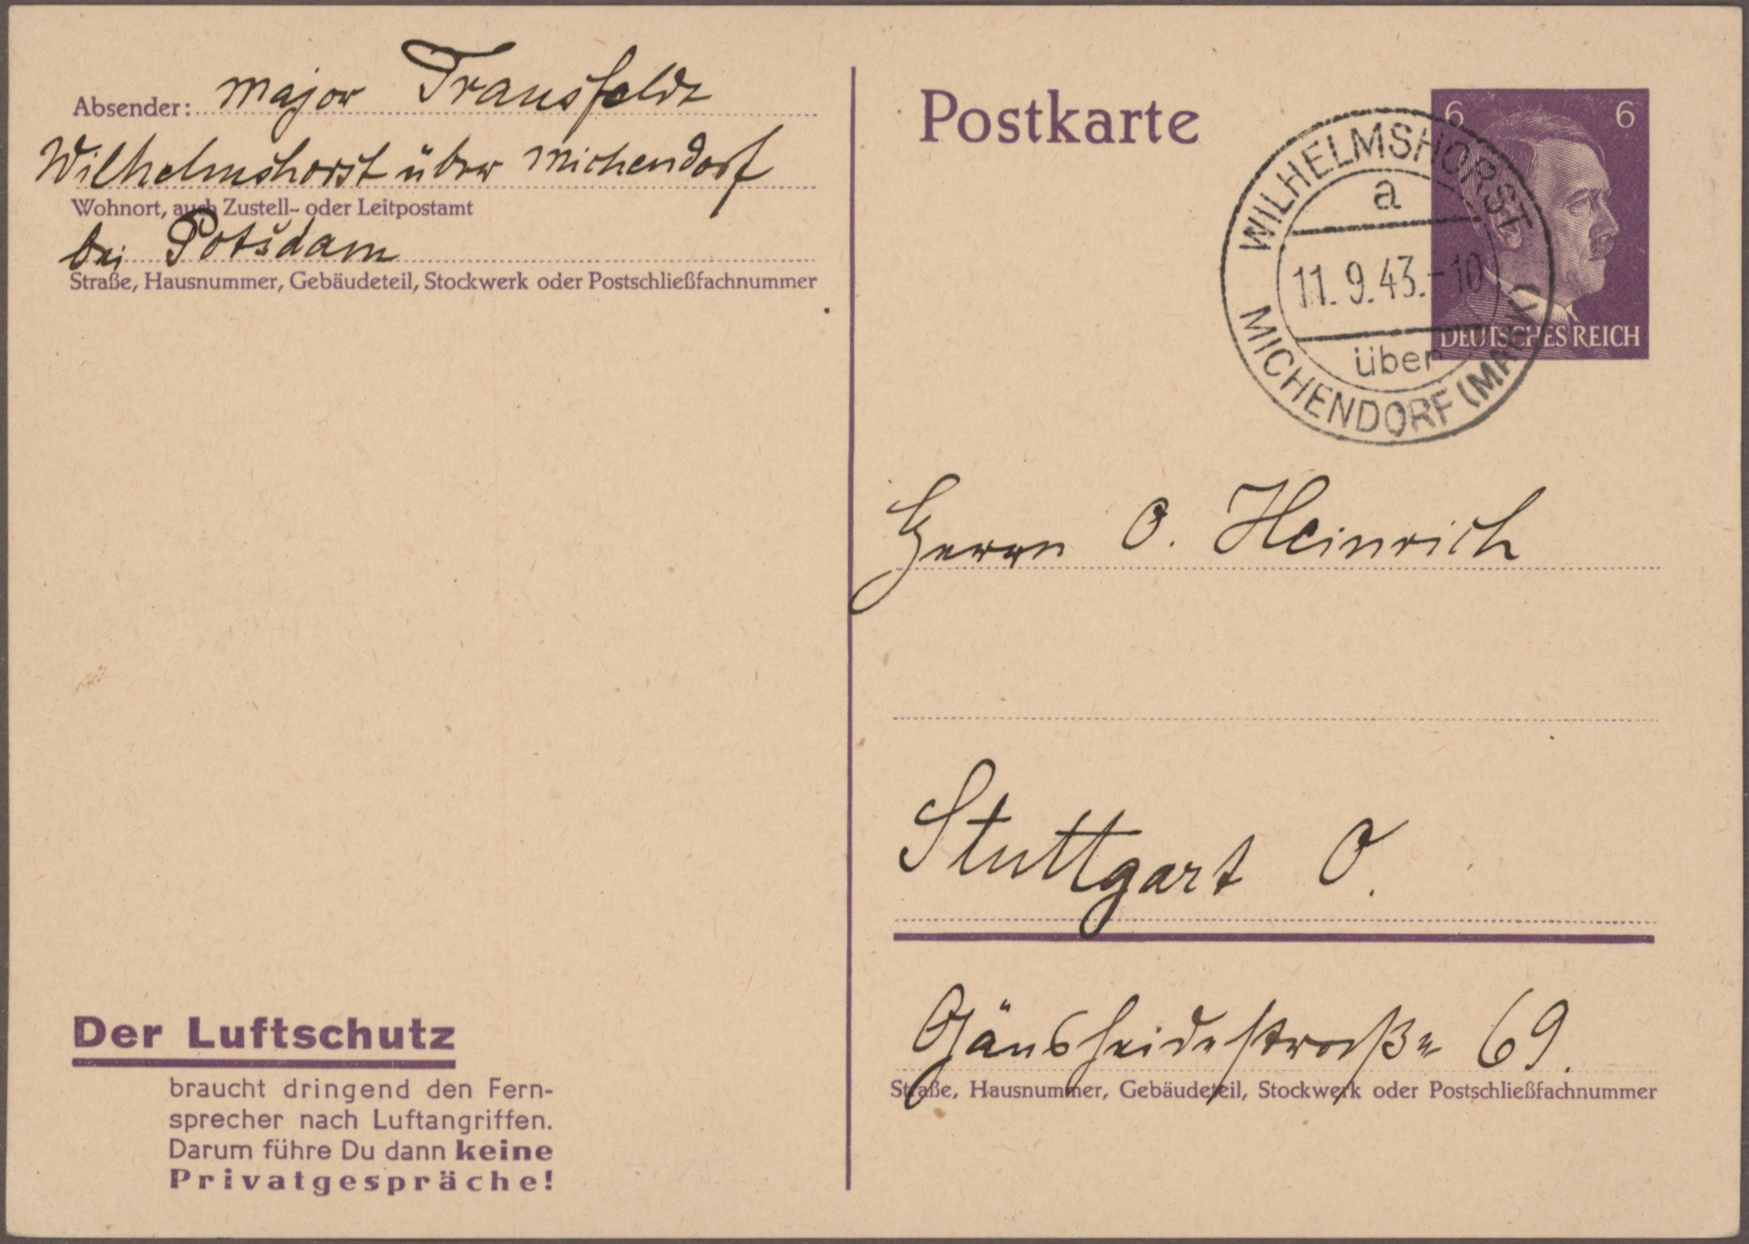 Absender: Major Transfeldt
Wilhelmshorst über Michendorf
Wohnort, auch Zustell- oder Leitpostamt
bei Potsdam
Straße, Hausnummer, Gebäudeteil, Stockwerk oder Postschließfachnummer
Der Luftschutz
braucht dringend den Fern-
sprecher nach Luftangriffen.
Darum führe Du dann keine
Privatgespräche!
Postkarte
6 6
DEUTSCHES REICH
WILHELMSHORST
a
11.9.43.-10
über
MICHENDORF (MARK)
Herrn O. Heinrich
Stuttgart O.
Gänsheidestraße 69.
Straße, Hausnummer, Gebäudeteil, Stockwerk oder Postschließfachnummer